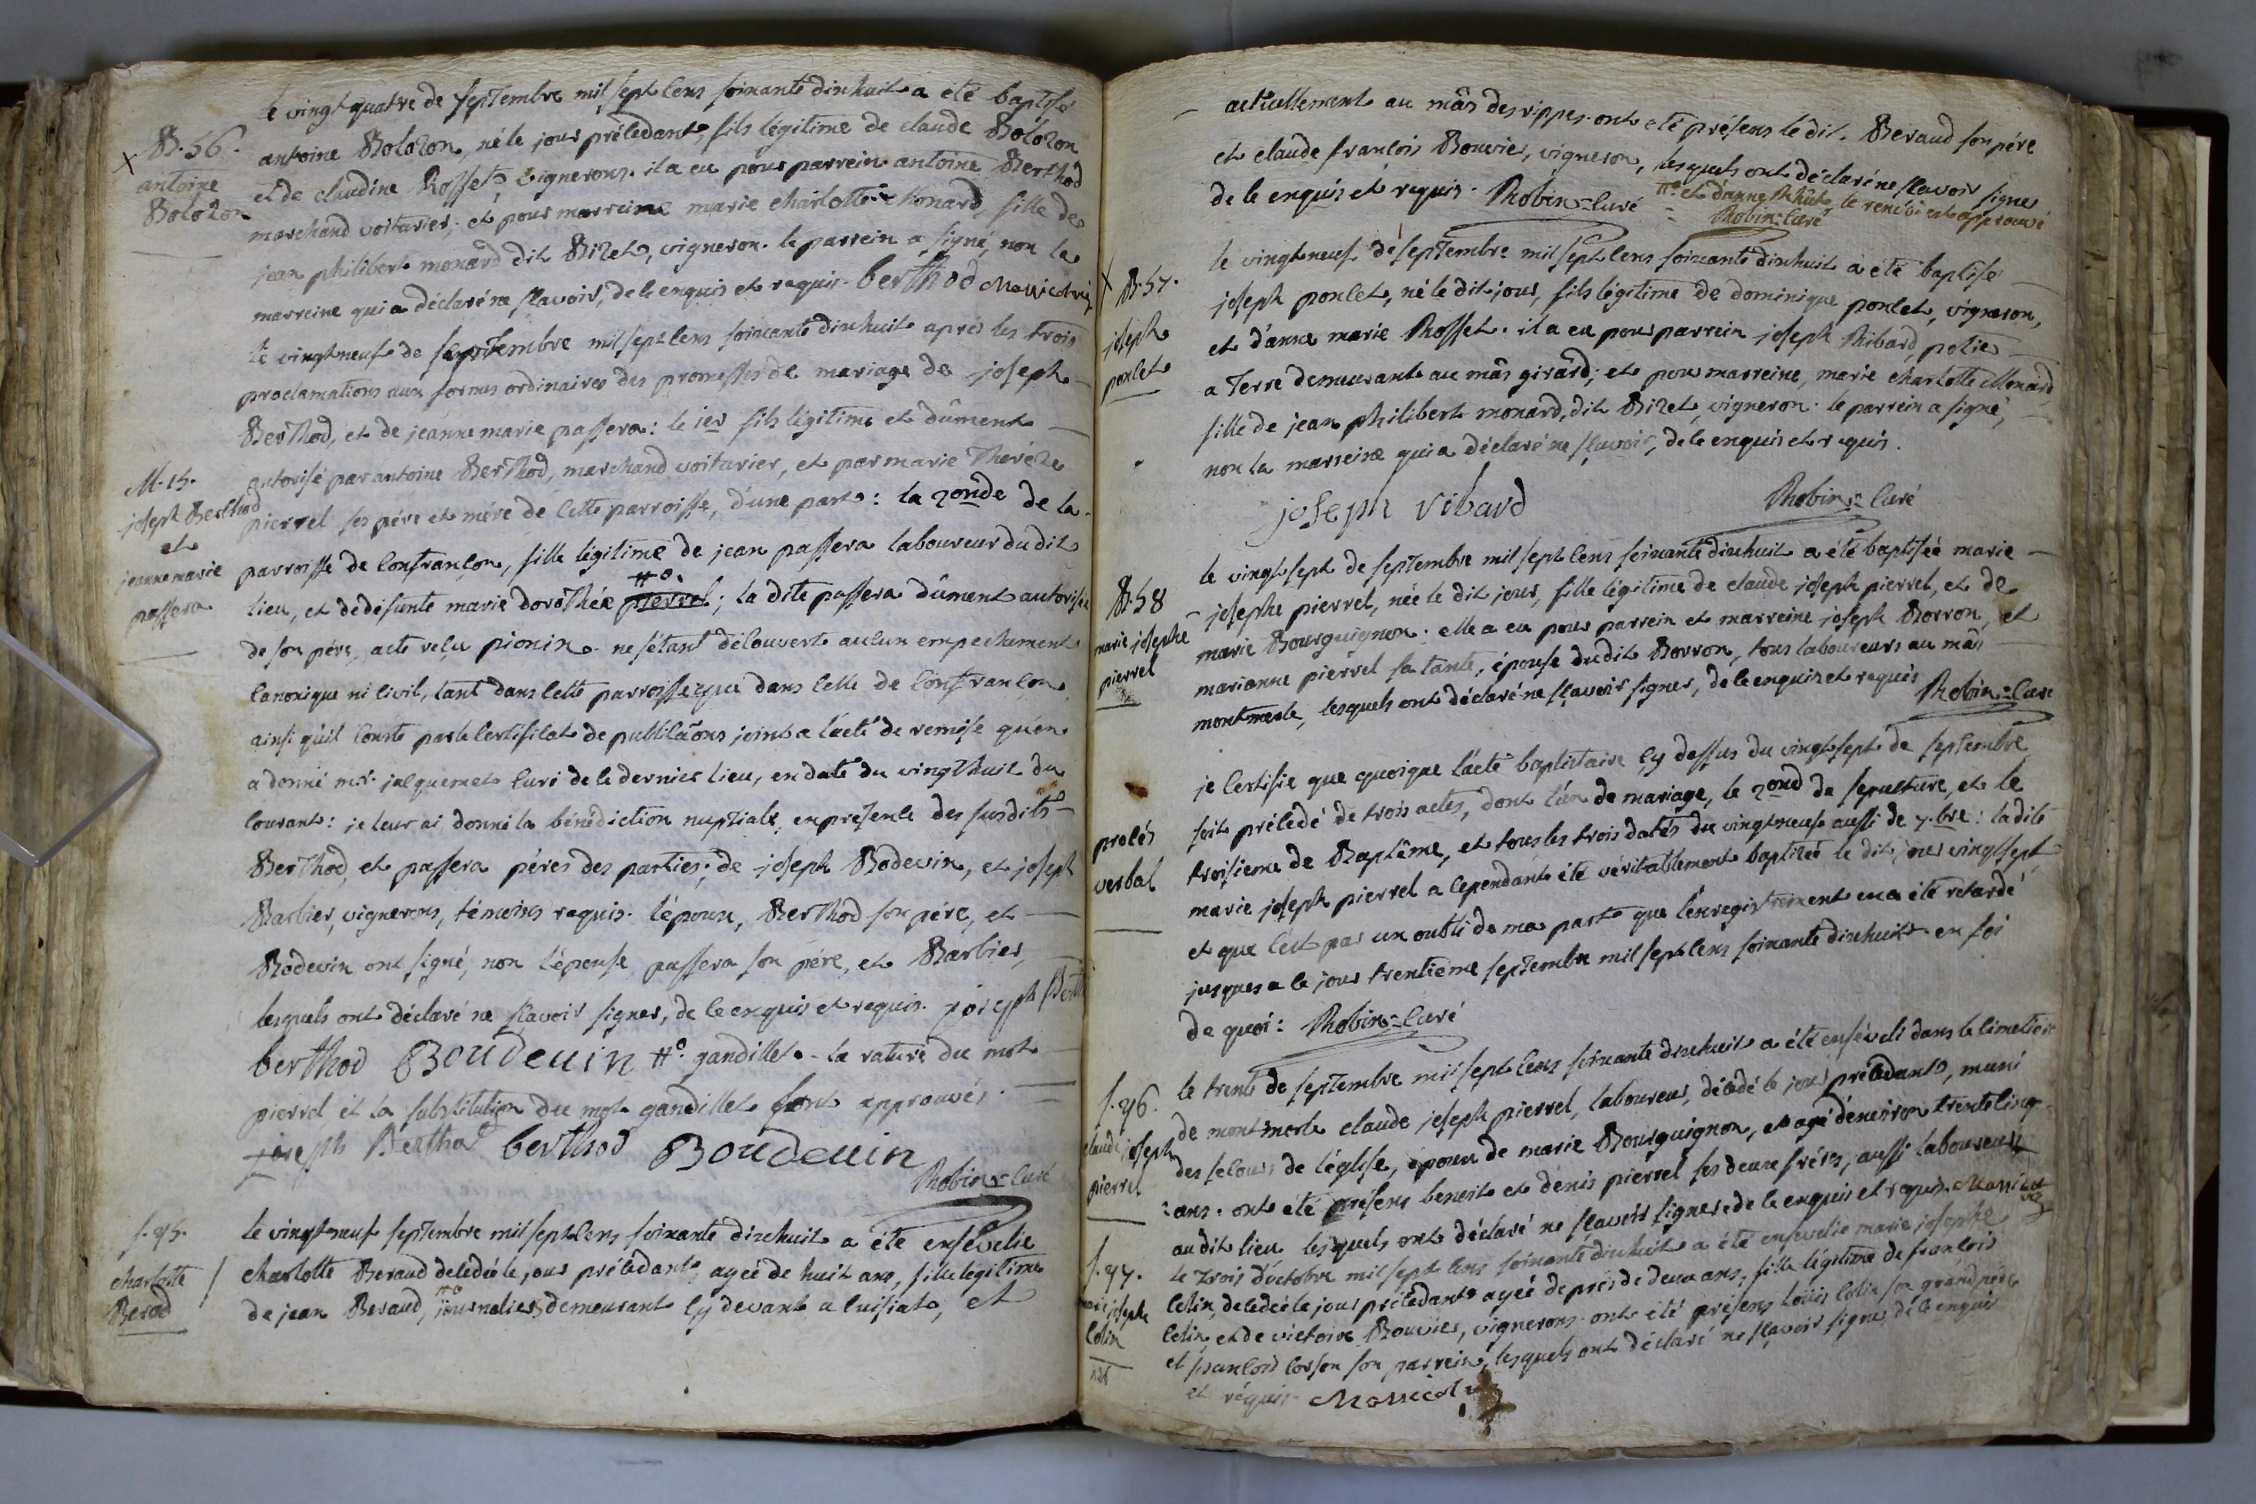 B. 56.
antoine
Bolozon
le vingt quatre de septembre mil sept cens soixante dixhuit a été baptisé
antoine Bolozon, né le jour précedant, fils légitime de claude Bolozon
et de claudine Rosset vignerons. il a eu pour parrein antoine Berthod
marchand voiturier; et pour marreine marie charlotte monard, fille de
jean philibert monard dit Bizet, vigneron. le parrein a signé, non la
marreine qui a déclaré ne sçavoir, de ce enquis et requis. berthod
M. 15.
joseph Berthod
et
jeanne marie
passera
le vingt neuf de septembre mil sept cens soixante dixhuit aprés les trois
proclamations aux formes ordinaires des promesses de mariage de joseph
Berthod, et de jeanne marie passera: le 1er fils légitime et dûment
autorisé par antoine Berthod, marchand voiturier, et par marie Thérèze
pierrel ses pére et mére de cette parroisse, d'une part: la 2onde de la
parroisse de Confrançon, fille légitime de jean passera laboureur du dit
lieu, et de défunte marie dorothée pierrel #o.; la dite passera dûment autorisée
de son pére, acte reçu pionin. ne s'étant découvert aucun empechement
canonique ni civil, tant dans cette parroisse que dans celle de Confrançon,
ainsi qu'il conste par le certificat de publicãons joint a l'acte de remise qu'en
a donné mr. jacquemet curé de ce dernier lieu, en date du vingt huit du
courant: je leur ai donné la bénédiction nuptiale, en présence des susdits
Berthod, et passera péres des parties; de joseph Bodevin, et joseph
Barbier, vignerons, témoins requis. l'époux, Berthod son pére, et
Bodevin ont signé, non l'épouse, passera son pére, et Barbier,
lesquels ont déclaré ne sçavoir signer, de ce enquis et requis. joseph Berth
berthod Boudevin #o. gandillet. la rature du mot
pierrel et la substitution du mot gandillet sont approuvés.
joseph Berthod berthod Boudevin
Robin = Curé
S. 95.
charlotte
Berod
le vingt neuf septembre mil sept cens soixante dixhuit a été ensévelie
charlotte Beraud decedée le jour précedant, agée de huit ans, fille légitime
de jean Beraud, journalier, demeurant cy devant a luisiat, et
actuellement au mâs des rippes. ont été présens le dit Beraud son pére
et claude françois Bouvier, vigneron, lesquels ont déclaré ne sçavoir signer
de ce enquis et requis. Robin = Curé #o. et d'anne le renvoi est approuvé
Robin = Curé
B. 57.
joseph
poncet
le vingt neuf de septembre mil sept cens soixante dixhuit a été baptisé
joseph poncet, né le dit jour, fils légitime de dominique poncet, vigneron,
et d'anne marie Rosset. il a eu pour parrein joseph Ribard, potier
a Terre demeurant au mâs girard; et pour marreine, marie charlotte Monard
fille de jean philibert monard, dit Bizet, vigneron. le parrein a signé,
non la marreine qui a déclaré ne sçavoir, de ce enquis et requis.
joseph ribard Robin = Curé
B. 58
marie josephe
pierrel
le vingt sept de septembre mil sept cens soixante dixhuit a été baptisée marie
josephe pierrel, née le dit jour, fille légitime de claude joseph pierrel, et de
marie Bourguignon. elle a eu pour parrein et marreine joseph Borron, et
marianne pierrel sa tante, épouse du dit Borron, tous laboureurs au mâs
montmerle, lesquels ont déclaré ne sçavoir signer, de ce enquis et requis Robin = Curé
procés
verbal
je certifie que quoique l'acte baptistaire cy dessus du vingt sept de septembre
soit précedé de trois actes, dont l'un de mariage, le 2ond de sepulture, et le
troisieme de Baptême, et tous les trois datés du vingt neuf aussi de 7.bre: la dite
marie joseph pierrel a cependant été véritablement baptisée le dit jour vingt sept
et que c'est par un oubli de ma part que l'enregistrement en a été retardé
jusques a ce jour trentieme septembre mil sept cens soixante dixhuit en foi
de quoi: Robin = Curé
S. 96.
claude joseph
pierrel
le trente de septembre mil sept cens soixante dixhuit a été enséveli dans le cimetiere
de montmerle claude joseph pierrel, laboureur, décedé le jour précedant, muni
des secours de l'église, époux de marie Bourguignon, et agé d'environ trente cinq
ans. ont été présens benoit et dénis pierrel ses deux fréres, aussi laboureurs
au dit lieu lesquels ont déclaré ne sçavoir signer de ce enquis et requis
S. 97.
marie josephe
Colin
le trois d'octobre mil sept cens soixante dixhuit a été ensevelie marie josephe
Colin, decedée le jour précedant agée de prés de deux ans, fille légitime de françois
Colin, et de victoire Bouvier, vignerons. ont été présens loüis Colin son grand pére
et françois corson son parrein, lesquels ont déclaré ne sçavoir signer de ce enquis
et requis.